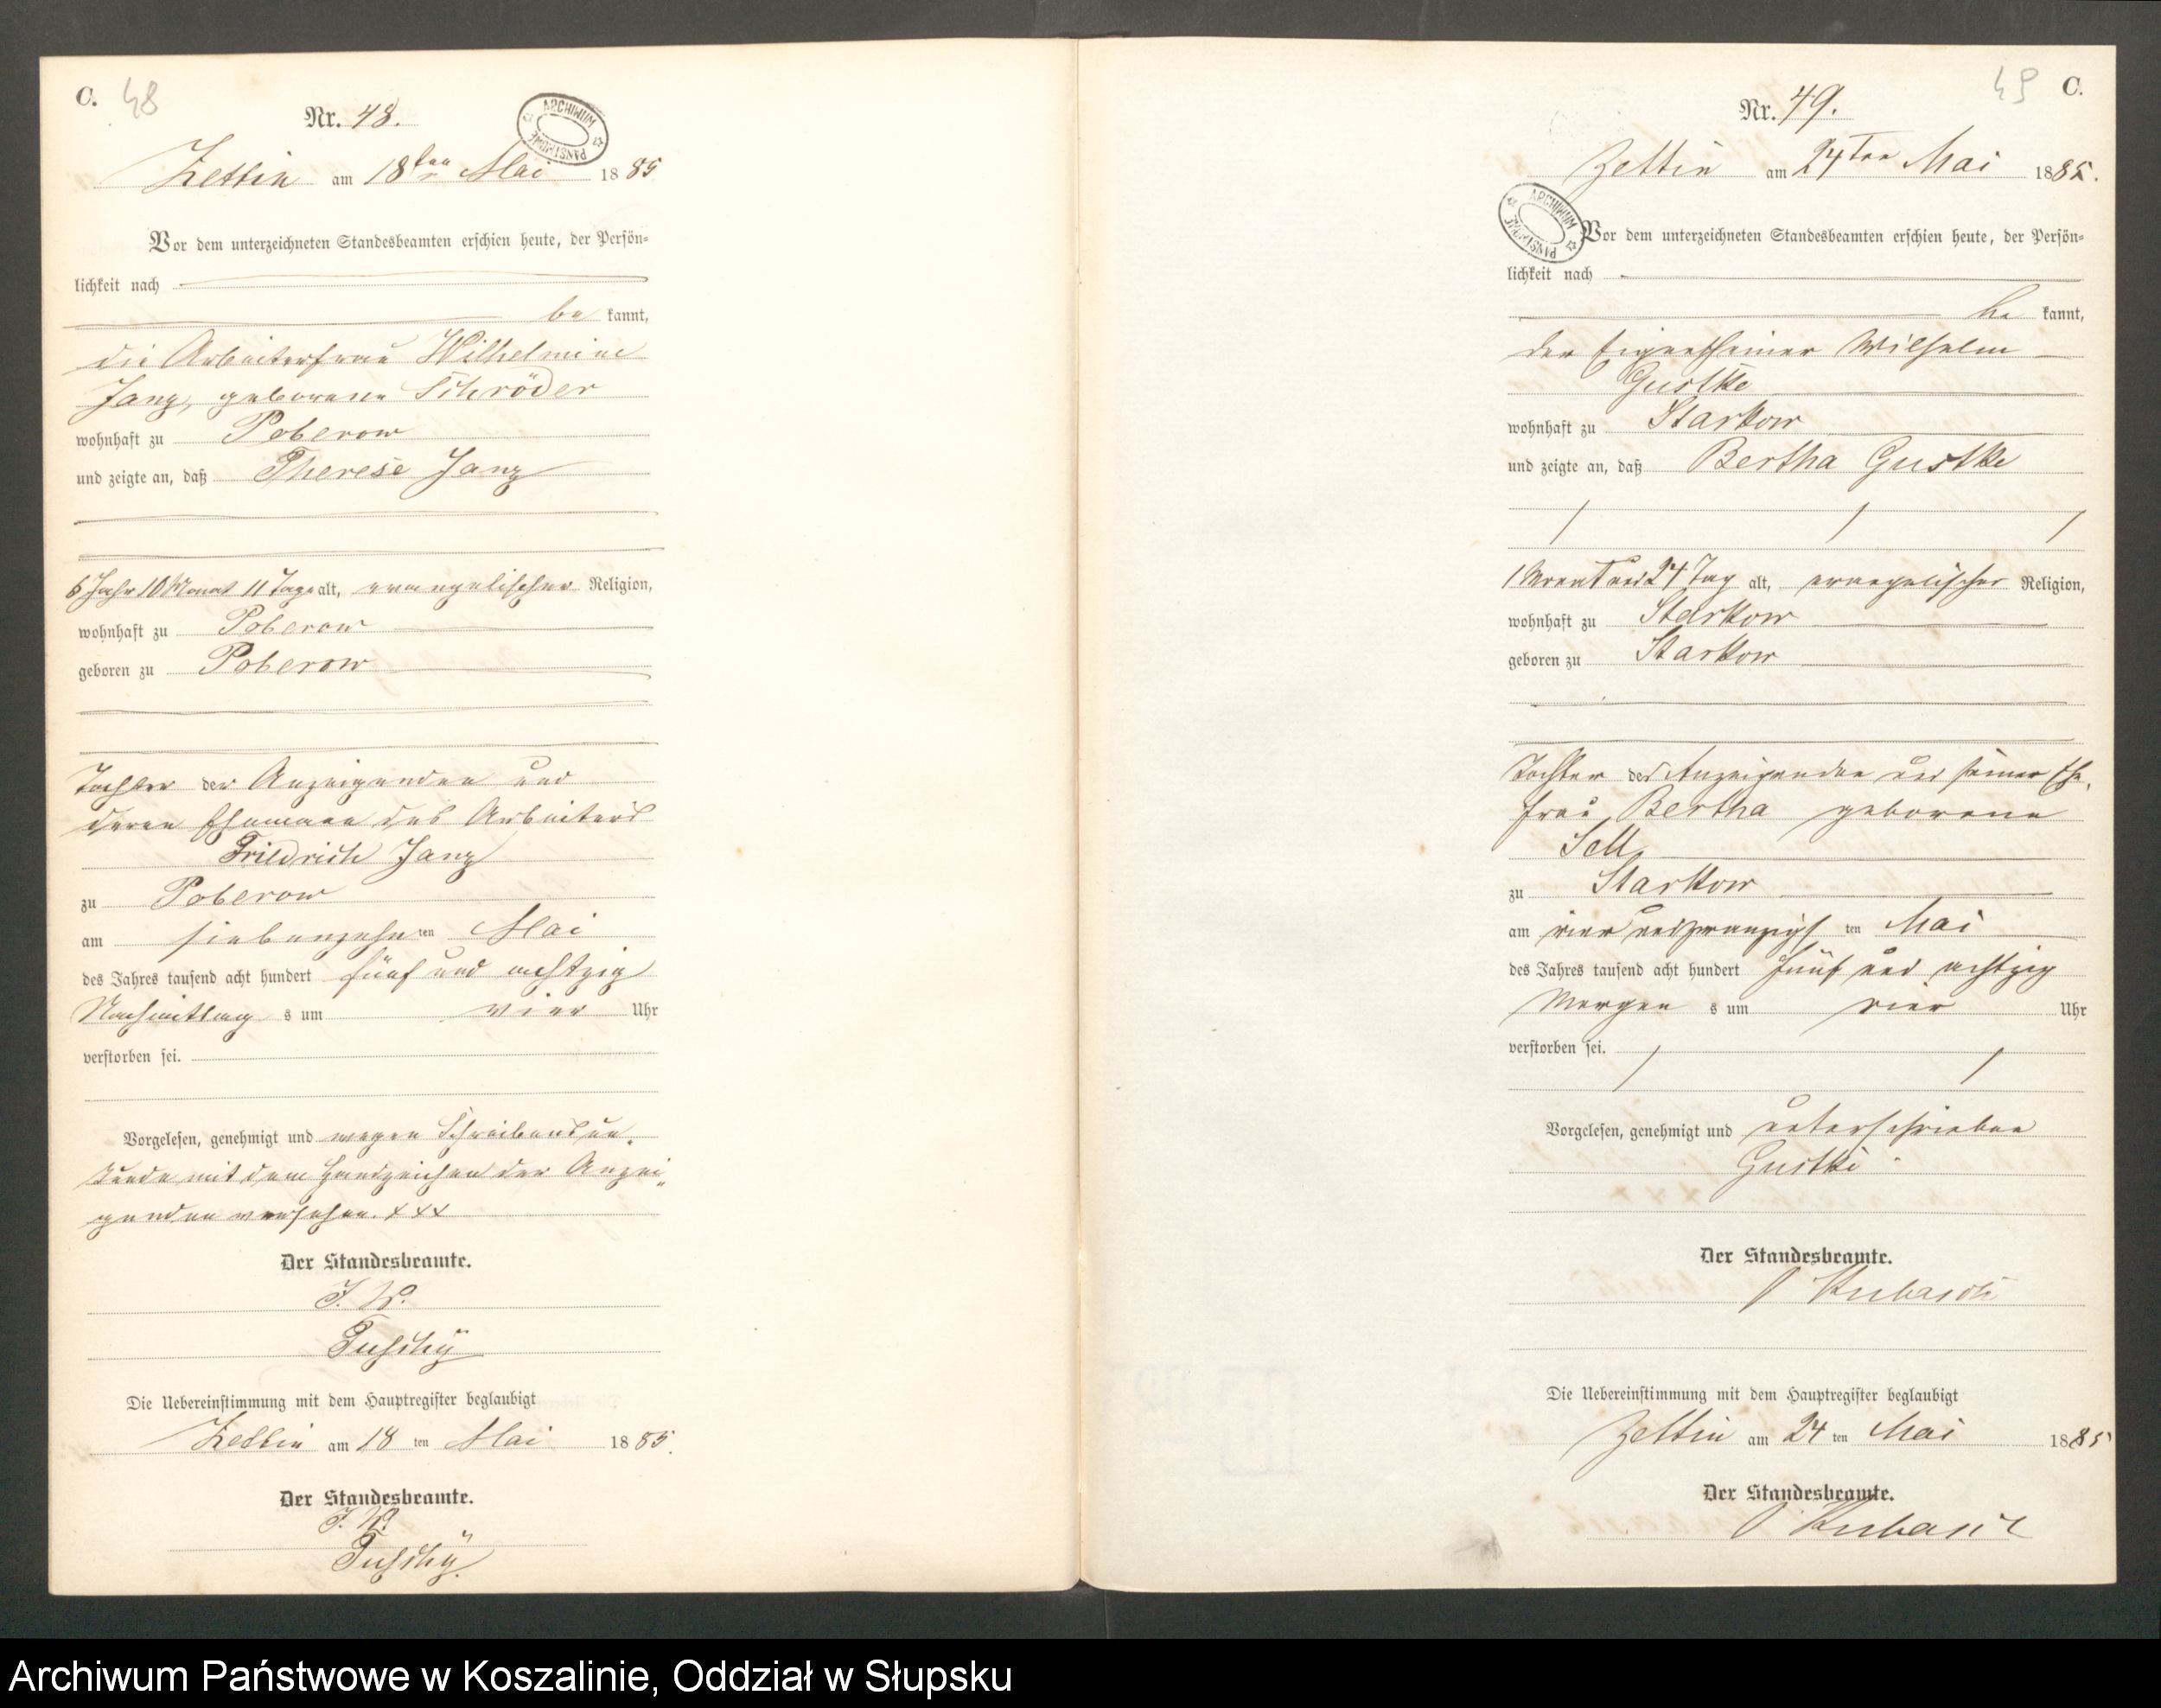 C. 48
Nr. 48.
ARCHIWUM PAŃSTWOWE
Zettin am 18ten Mai 1885
Vor dem unterzeichneten Standesbeamten erschien heute, der Persön=
lichkeit nach
be kannt,
die Arbeiterfrau Wilhelmine
Janz, geborene Schröder
wohnhaft zu Poberow
und zeigte an, daß Therese Janz
6 Jahr 10 Monat 11 Tage alt, evangelischer Religion,
wohnhaft zu Poberow
geboren zu Poberow
Tochter der Anzeigenden und
deren Ehemann des Arbeiters
Friedrich Janz
zu Poberow
am siebenzehn ten Mai
des Jahres tausend acht hundert fünf und achtzig
Nachmittag s um vier Uhr
verstorben sei.
Vorgelesen, genehmigt und wegen Schreibensun=
kunde mit dem Handzeichen der Anzei=
genden versehen. XXX
Der Standesbeamte.
I. V.
Die Uebereinstimmung mit dem Hauptregister beglaubigt
Zettin am 18 ten Mai 1885.
Der Standesbeamte.
I. V.
49 C.
Nr. 49.
Zettin am 24ten Mai 1885.
ARCHIWUM PAŃSTWOWE
Vor dem unterzeichneten Standesbeamten erschien heute, der Persön=
lichkeit nach
be kannt,
der Eigenthümer Wilhelm
Gustke
wohnhaft zu Starkow
und zeigte an, daß Bertha Gustke
1 Monat und 24 Tag alt, evangelischer Religion,
wohnhaft zu Starkow
geboren zu Starkow
Tochter des Anzeigenden und seiner Ehe=
frau Bertha geborene
Sell
zu Starkow
am vier und zwanzigs ten Mai
des Jahres tausend acht hundert fünf und achtzig
Morgen s um vier Uhr
verstorben sei.
Vorgelesen, genehmigt und unterschrieben
Gustke
Der Standesbeamte.
Die Uebereinstimmung mit dem Hauptregister beglaubigt
Zettin am 24 ten Mai 1885
Der Standesbeamte.
Archiwum Państwowe w Koszalinie, Oddział w Słupsku